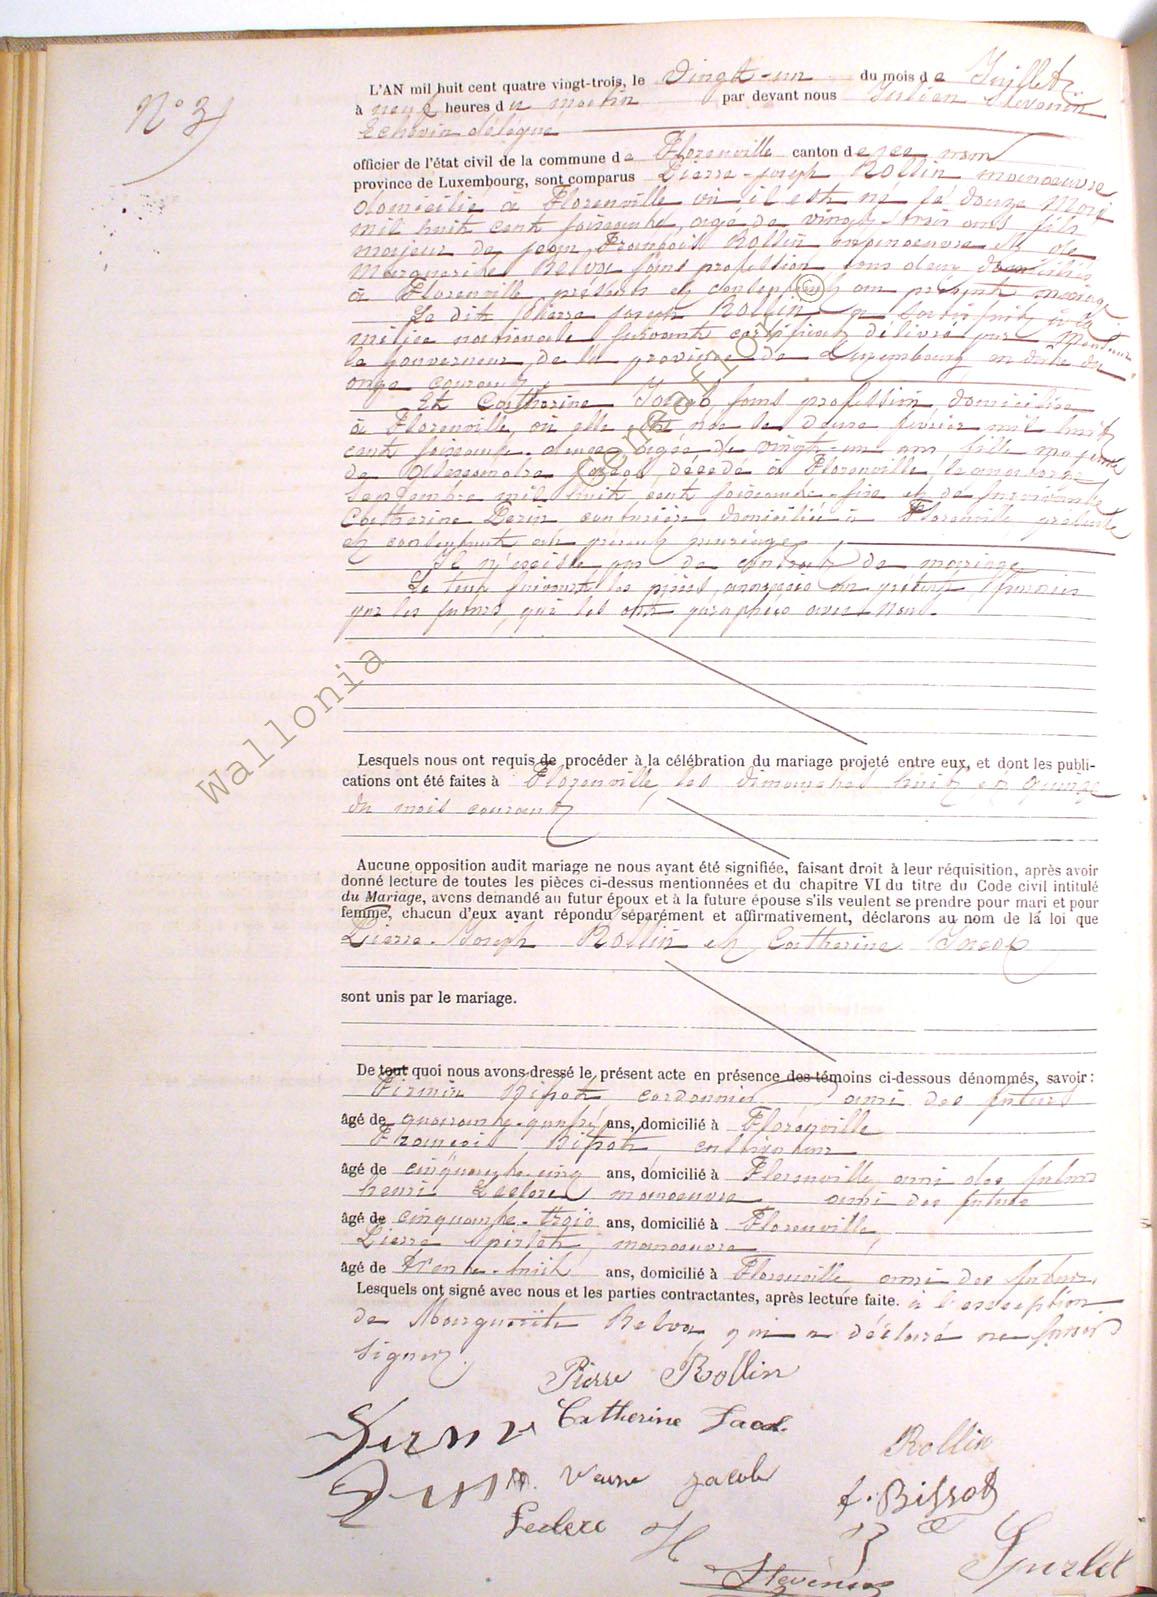 N° 3
L'AN mil huit cent quatre vingt-trois, le vingt-un du mois de Juillet
à neuf heures du matin par devant nous Julien Stevenin
Echevin délégué
officier de l'état civil de la commune de Florenville canton de ce nom
province de Luxembourg, sont comparus Pierre-Joseph Rollin manoeuvre
domicilié à Florenville où il est né le douze Mai
mil huit cent soixante, agé de vingt-trois ans, fils
majeur de Jean François Rollin manoeuvre et de
Marguerite Belva sans profession tous deux domiciliés
à Florenville présents et consentant au présent mariage
Le dit Pierre Joseph Rollin a satisfait à la
milice nationale suivant certificat délivré par Monsieur
le Gouverneur de la province de Luxembourg en date du
onze courant
Et Catherine Jacob sans profession, domiciliée
à Florenville, où elle est née le douze février mil huit
cent soixante-deux agée de vingt-un ans, fille majeure
de Jacob décédé à Florenville, le
Septembre mil huit cent soixante- et de
Catherine couturière domiciliée à Florenville présente
et consentant au présent mariage
Il n'existe pas de contrat de mariage
Le tout suivant les pièces annexées au présent fournies
par les futurs, qui les ont paraphées avec Nous.
Lesquels nous ont requis de procéder à la célébration du mariage projeté entre eux, et dont les publi-
cations ont été faites à Florenville, les dimanches huit et quinze
du mois courant
Aucune opposition audit mariage ne nous ayant été signifiée, faisant droit à leur réquisition, après avoir
donné lecture de toutes les pièces ci-dessus mentionnées et du chapitre VI du titre du Code civil intitulé
du Mariage, avons demandé au futur époux et à la future épouse s'ils veulent se prendre pour mari et pour
femme, chacun d'eux ayant répondu séparément et affirmativement, déclarons au nom de la loi que
Pierre-Joseph Rollin et Catherine Jacob
sont unis par le mariage.
De tout quoi nous avons dressé le présent acte en présence des témoins ci-dessous dénommés, savoir :
Firmin cordonnier ami des futurs
âgé de quarante- ans, domicilié à Florenville
François cultivateur
âgé de cinquante-cinq ans, domicilié à Florenville ami des futurs
henri Leclere manoeuvre ami des futurs
âgé de cinquante-trois ans, domicilié à Florenville,
Pierre manoeuvre
âgé de trente-huit ans, domicilié à Florenville ami des futurs.
Lesquels ont signé avec nous et les parties contractantes, après lecture faite. à l'exception
de Marguerite Belva qui a déclaré ne savoir
signer.
Pierre Rollin
Catherine Jacob
Rollin
Veuve Jacob
f. Bissot
Leclere H
Stévenin
wallonia